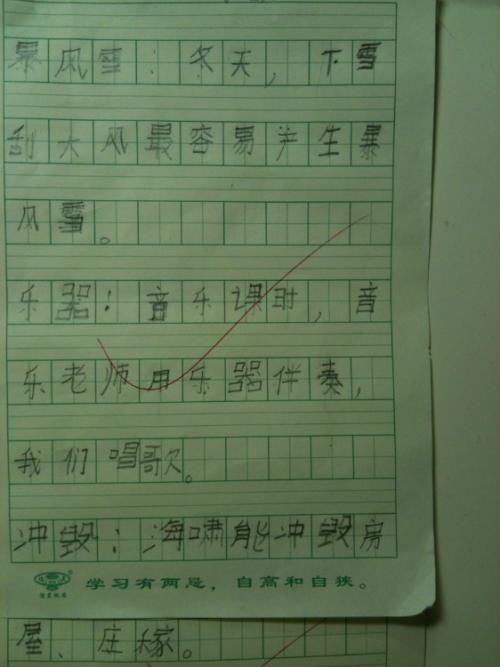 暴风雪：冬天，下雪
刮大风最容易产生暴
风雪。
乐器：音乐课时，音
乐老师用乐器伴奏，
我们唱歌。
冲毁：海啸能冲毁房
学习有两忌，自高和自狭。
屋、庄稼。